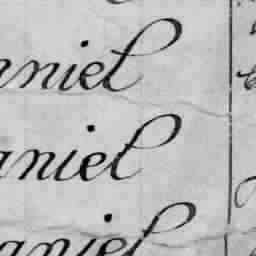 nniel
aniel
aniel